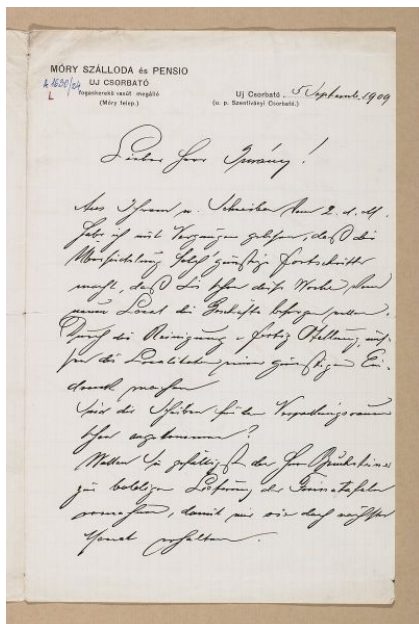 MÓRY SZÁLLODA és PENSIO
UJ CSORBATÓ
fogaskerekű vasút megálló
(Móry telep.)
A 1630/24
L
Uj Csorbató, 5 Septemb. 1909
(u. p. Szentiványi Csorbató.)
Lieber Herr
Aus Ihrem w. Schreiben vom 2. d. M.
habe ich mit Vergnügen gelesen, daß die
Übersiedlung solch' günstige Fortschritte
macht, daß Sie schon diese Woche vom
neuen Local die Geschäfte besorgen wollen.
Durch die Reinigung u. fertig Stellung, müs-
sen die Localitäten einen günstigen Ein-
druck machen
Sind die Scheiben für den Verpackungsraum
schon angekommen?
Wollen Sie gefälligst den Herrn
zur baldigen Lieferung der
ermahnen, damit wir sie doch nächsten
Monat erhalten.